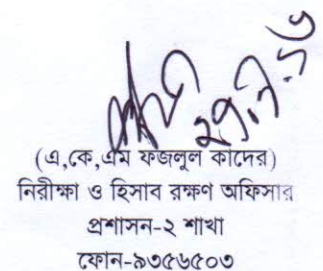 ২৭.৭.১৬
(এ,কে,এম ফজলুল কাদের)
নিরীক্ষা ও হিসাব রক্ষণ অফিসার
প্রশাসন-২ শাখা
ফোন-৯৩৫৬৫০৩